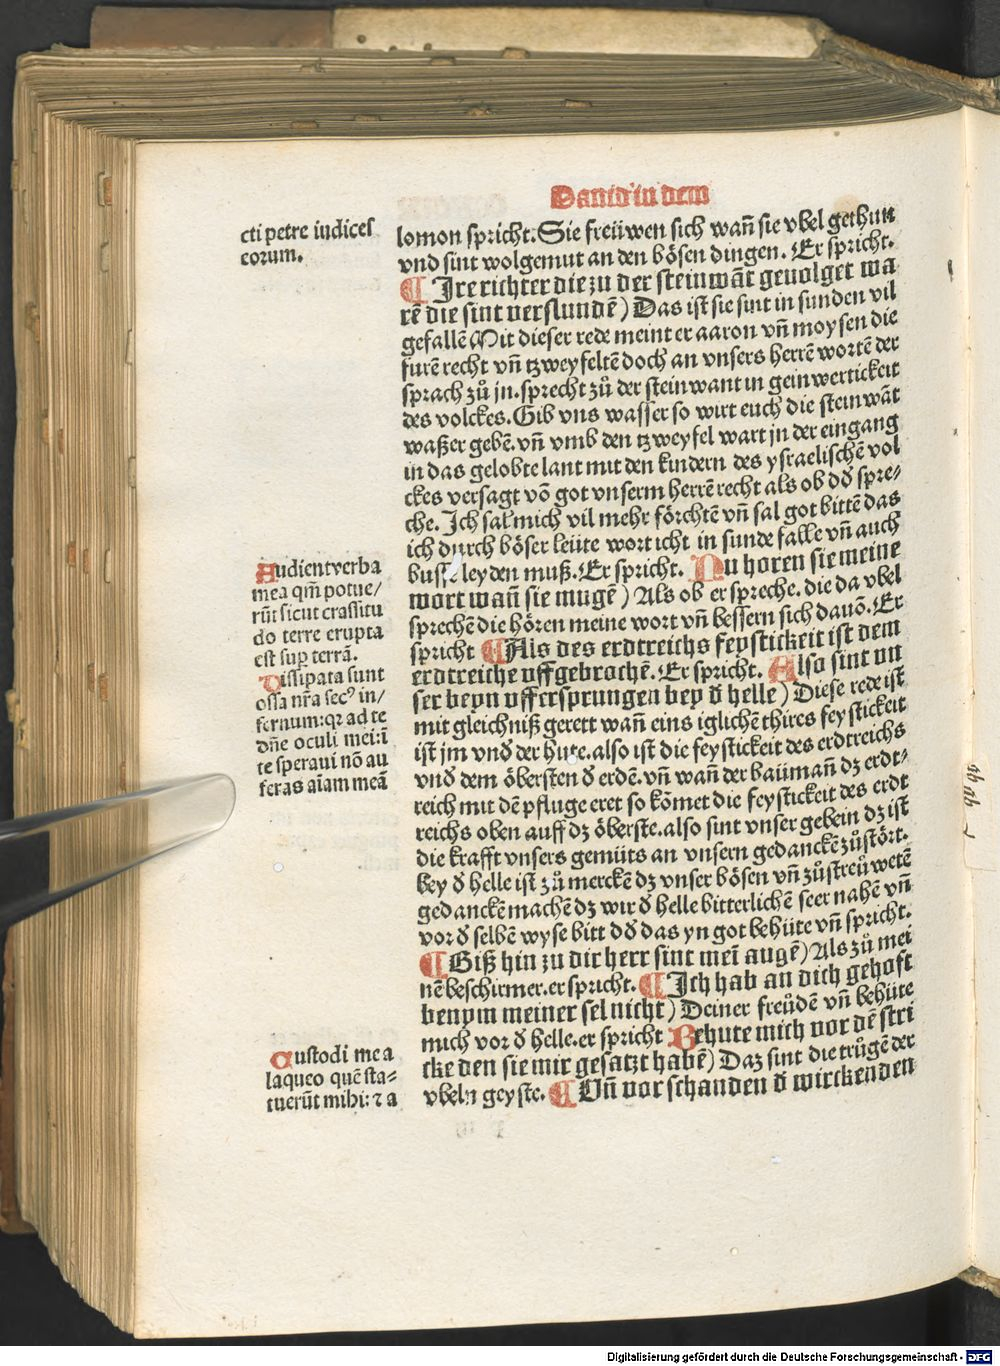 Dauid in dem
cti petre iudices
eorum.
lomon spricht. Sie freüwen sich wañ sie vbel gethun
vnd sint wolgemut an den bösen dingen. Er spricht.
¶ Ire richter die zu der steinwāt geuolget wa
rē die sint verslundē) Das ist sie sint in sunden vil
gefallē Mit dieser rede meint er aaron vñ moysen die
furē recht vñ tzweyfeltē doch an vnsers herrē wortē der
sprach zů jn. sprecht zů der steinwant in geinwertickeit
des volckes. Gib vns wasser so wirt euch die steinwāt
waßer gebē. vñ vmb den tzweyfel wart jn der eingang
in das gelobte lant mit den kindern des ysraelischē vol
ckes versagt vō got vnserm herrē recht als ob dð spre/
che. Ich sal mich vil mehr förchtē vñ sal got bittē das
ich durch böser leüte wort icht in sunde falle vñ auch
busse leyden muß. Er spricht. Nu horen sie meine
wort wañ sie mugē) Als ob er spreche. die da vbel
sprechē die hören meine wort vñ bessern sich dauō. Er
spricht ¶ Als des erdtreichs feystickeit ist dem
erdtreiche vffgebrochē. Er spricht. Also sint vn
ser beyn vffersprungen bey ð helle) Diese rede ist
mit gleichniß gerett wañ eins iglichē thires feystickeit
ist jm vnð der hute. also ist die feystickeit des erdtreichs
vnð dem öbersten ð erdē. vñ wañ der baümañ dz erdt-
reich mit dē pfluge eret so kōmet die feystickeit des erdt
reichs oben auff dz öberste. also sint vnser gebein dz ist
die krafft vnsers gemüts an vnsern gedanckē zůstört.
bey ð helle ist zů merckē dz vnser bösen vñ zůstreüwetē
gedanckē machē dz wir ð helle bitterlichē seer nahē vñ
vor ð selbē wyse bitt dð das yn got behüte vñ spricht.
¶ Biß hin zu dir herr sint mei augē) Als zů mei
nē beschirmer. er spricht. ¶ Ich hab an dich gehoft
benym meiner sel nicht) Deiner freůdē vñ behüte
mich vor ð helle. er spricht Behute mich vor dē stri
cke den sie mir gesatzt habē) Daz sint die trůgē der
vbeln geyste. ¶ Vñ vor schanden ð wirckenden
Audient verba
mea qm̄ potue/
rūt sicut crassitu
do terre erupta
est sup terrā.
Dissipata sunt
ossa nr̄a secꝰ in/
fernum: qz ad te
dn̄e oculi mei: ī
te speraui nō au
feras aīam meā
Custodi me a
laqueo quē sta-
tuerūt mihi: ⁊ a
Digitalisierung gefördert durch die Deutsche Forschungsgemeinschaft - DFG